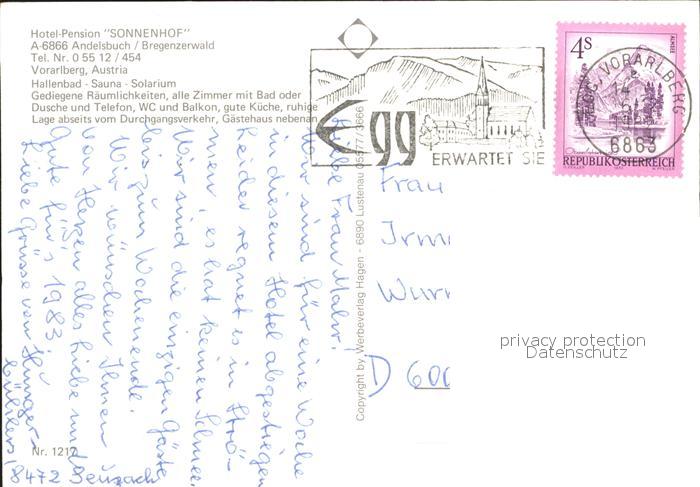 Hotel-Pension "SONNENHOF"
A-6866 Andelsbuch / Bregenzerwald
Tel. Nr. 0 55 12 / 454
Vorarlberg, Austria
Hallenbad - Sauna - Solarium
Gediegene Räumlichkeiten, alle Zimmer mit Bad oder
Dusche und Telefon, WC und Balkon, gute Küche, ruhige
Lage abseits vom Durchgangsverkehr, Gästehaus nebenan
Egg
ERWARTET SIE
4S
ALMSEE
REPUBLIK ÖSTERREICH
VORARLBERG
6863
Copyright by Werbeverlag Hagen - 6890 Lustenau 05577 / 3666
Liebe Frau Mahr!
Wir sind für eine Woche
in diesem Hotel abgestiegen
Leider regnet es in Strö-
men, es hat keinen Schnee.
Wir sind die einzigen Gäste
bis zum Wochenende.
Wir wünschen Ihnen
von Herzen alles Liebe und
Gute für's 1983.
Liebe Grüsse von
8472 Seuzach
Frau
Irm
Wur
D 600
Nr. 1212
privacy protection
Datenschutz